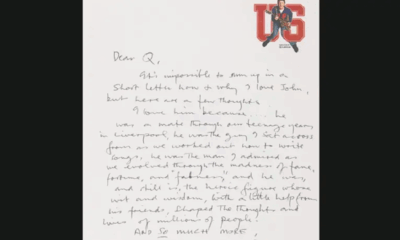 US
Dear Q,
It's impossible to sum up in a
short letter how & why I love John,
but here are a few thoughts.
I love him because... he
was a mate through our teenage years
in Liverpool, he was the guy I sat across
from as we worked out how to write
songs, he was the man I admired as
we evolved through the madness of fame,
fortune, and "fabness" and he was,
and still is, the heroic figure whose
wit and wisdom, with a little help from
his friends, shaped the thoughts and
lives of millions of people.
AND SO MUCH MORE,